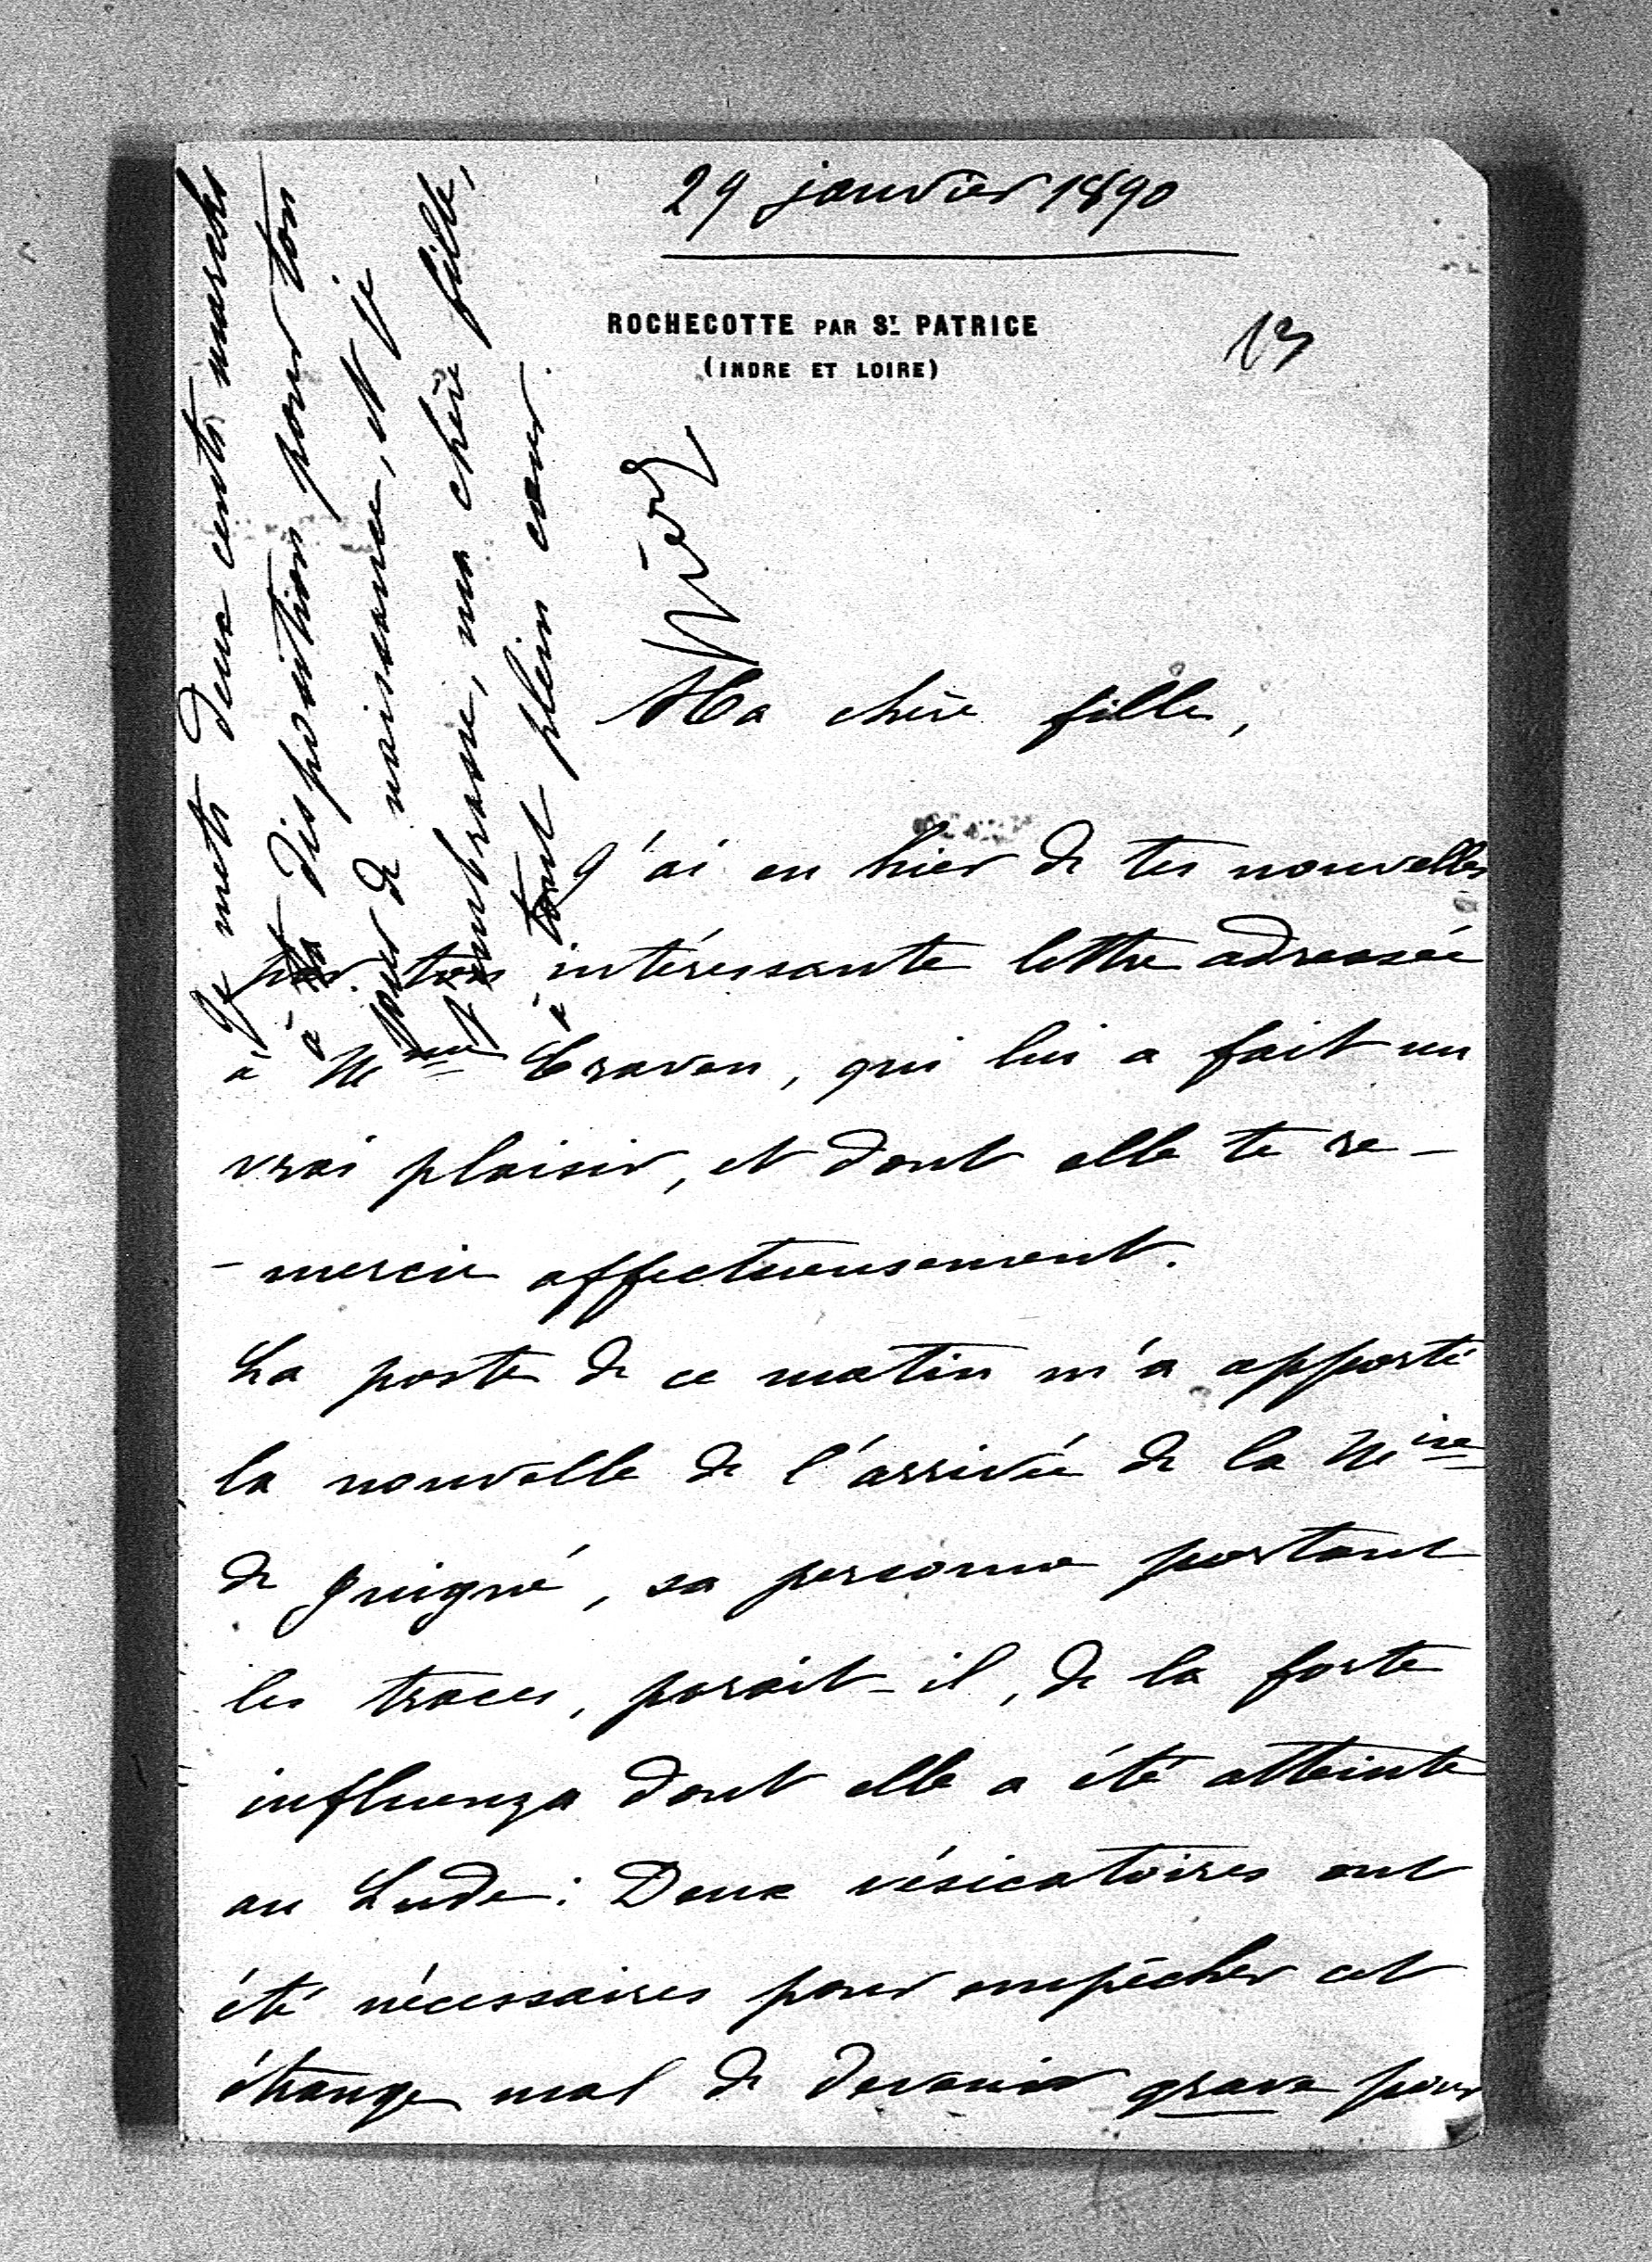 29 janvier 1890
ROCHECOTTE PAR ST PATRICE
(INDRE ET LOIRE)
13
Ma chère fille,
J'ai eu hier de tes nouvelles
par ton intéressante lettre adressée
à Mme Craven, qui lui a fait un
vrai plaisir, et dont elle te re-
-mercie affectueusement.
La poste de ce matin m'a apporté
la nouvelle de l'arrivée de la Mise
de Juigné, sa personne portant
les traces, paraît-il, de la forte
influenza dont elle a été atteinte
au Lude: Deux vésicatoires ont
été nécessaires pour empêcher cet
étrange mal de devenir grave pour
Je mets deux cents marcks
à ta disposition pour ton
jour de naissance, et je
t'embrasse, ma chère fille,
à tout plein cœur.